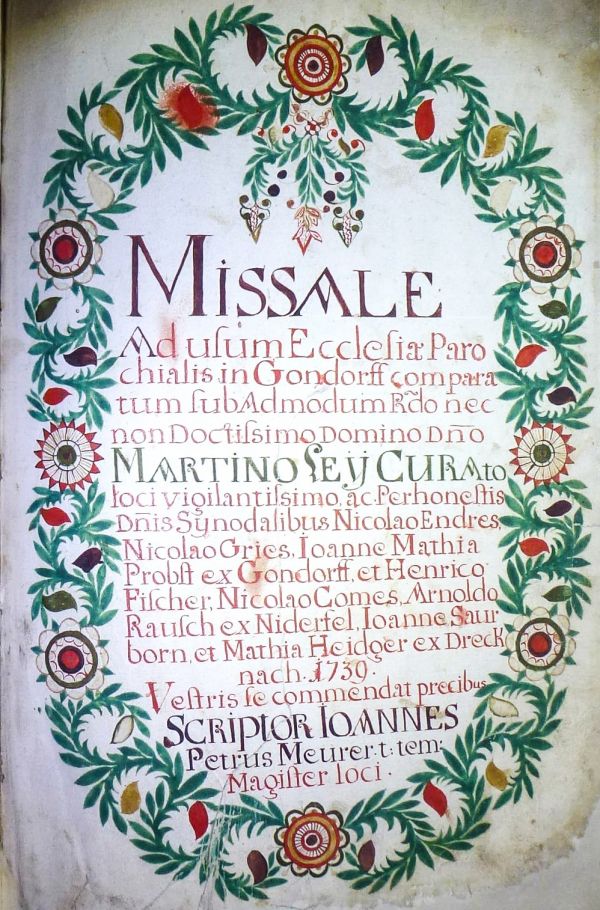 MissALE
Ad usum Ecclesiæ Paro
chialis in Gondorff compara
tum sub Admodum Rdo nec
non Doctissimo Domino Dño
MARTINO LEŸ CURAto
loci vigilantissimo, ac Perhonestis
Dñis Synodalibus Nicolao Endres,
Nicolao Gries, Ioanne Mathia
Probst ex Gondorff, et Henrico
Fischer, Nicolao Comes, Arnoldo
Rausch ex Niderfel, Ioanne Saur
born, et Mathia Heidger ex Dreck
nach. 1739.
Vestris se commendat precibus
SCRIPTOR IOANNES
Petrus Meurer t: tem:
Magister loci.